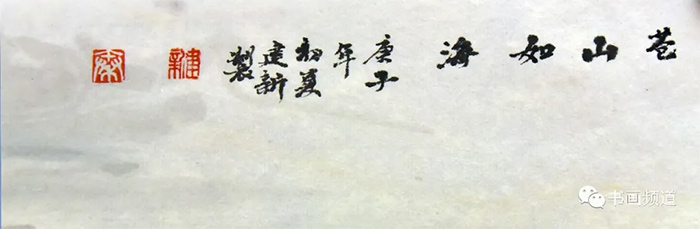 苍山如海
庚子
年
初夏
建新
製
建新
书画频道